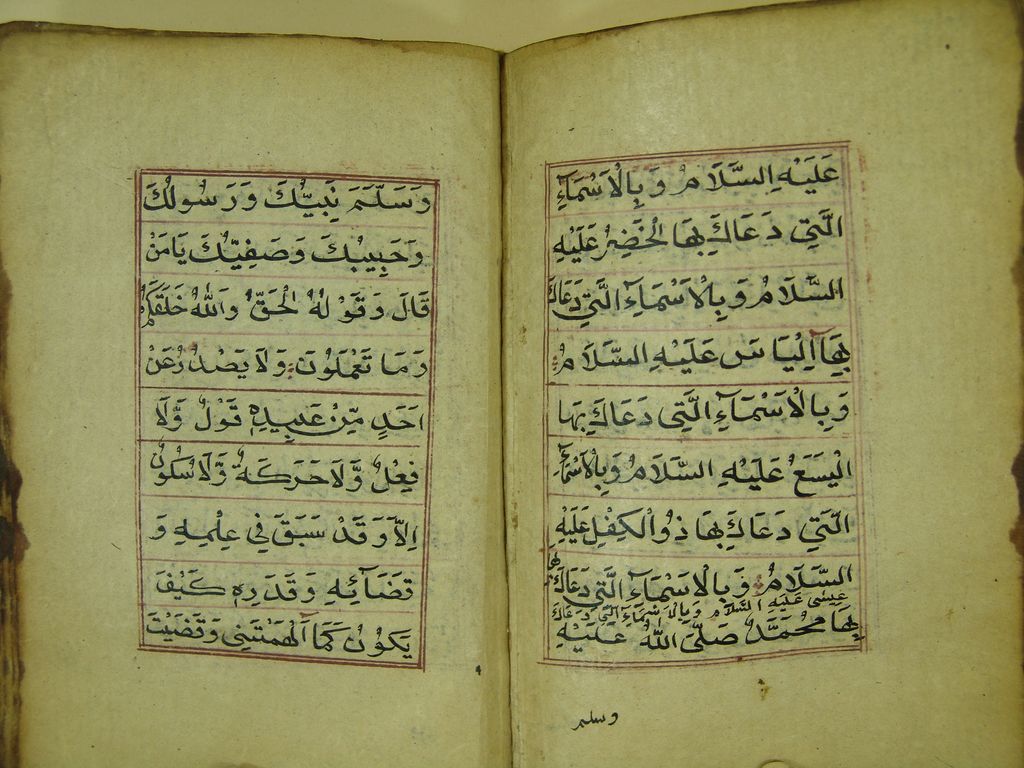 عَلَيْهِ السَّلَامُ وَبِالْاَسْمَآءِ
الَّتِى دَعَاكَ بِهَا الْخَضِرُ عَلَيْهِ
السَّلَامُ وَبِالْاَسْمَآءِ الَّتِى دَعَاكَ
بِهَآ اِلْيَاسُ عَلَيْهِ السَّلَامُ
وَبِالْاَسْمَآءِ الَّتِى دَعَاكَ بِهَا
الْيَسَعُ عَلَيْهِ السَّلَامُ وَبِالْاَسْمَآءِ
الَّتِى دَعَاكَ بِهَا ذُو الْكِفْلِ عَلَيْهِ
السَّلَامُ وَبِالْاَسْمَآءِ الَّتِى دَعَاكَ بِهَا
عِيسٰى عَلَيْهِ السَّلَامُ وَبِالْاَسْمَآءِ الَّتِى دَعَاكَ
بِهَا مُحَمَّدٌ صَلَّى اللّٰهُ عَلَيْهِ
وسلم
وَسَلَّمَ نَبِيُّكَ وَرَسُولُكَ
وَحَبِيبُكَ وَصَفِيُّكَ يَامَنْ
قَالَ وَقَوْلُهُ الْحَقُّ وَاللّٰهُ خَلَقَكُمْ
وَمَا تَعْمَلُونَ وَلَا يَصْدُرُ عَنْ
اَحَدٍ مِّنْ عَبِيدِهِ قَوْلٌ وَّلَا
فِعْلٌ وَّلَا حَرَكَةٌ وَّلَا سُكُونٌ
اِلَّا وَقَدْ سَبَقَ فِي عِلْمِهِ وَ
قَضَآئِهِ وَقَدَرِهِ كَيْفَ
يَكُونُ كَمَا اَلْهَمْتَنِى وَقَضَيْتَ